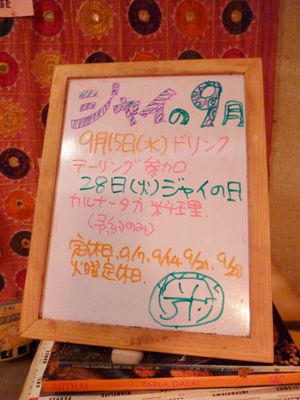 ジャイの9月
9月15日(水)ドリンク
テーリング参加.
28日(火)ジャイの日
カルナータカ料理
(予約のみ)
定休日,9/7,9/14,9/21,9/28
火曜定休日
TARLA DALAL